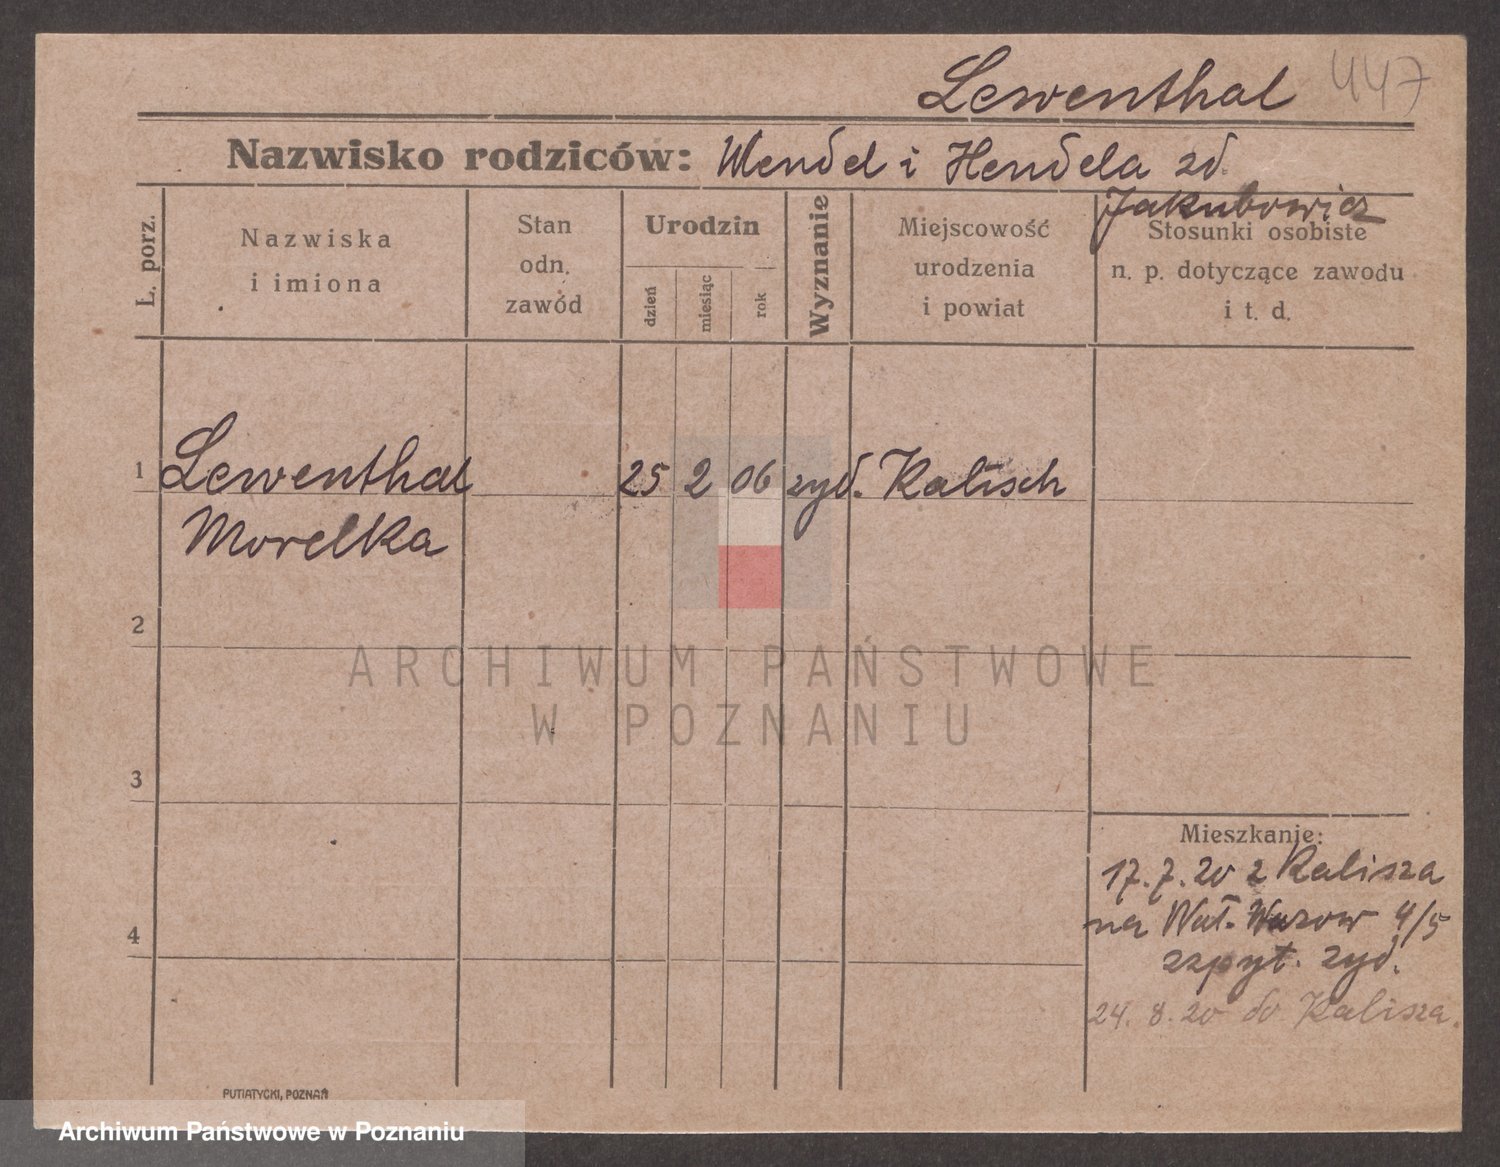 Lewenthal 447
Nazwisko rodziców: Mendel i Hendela zd.
Jakubowicz
L. porz.
Nazwiska
i imiona
Stan
odn.
zawód
Urodzin
dzień
miesiąc
rok
Wyznanie
Miejscowość
urodzenia
i powiat
Stosunki osobiste
n. p. dotyczące zawodu
i t. d.
1 Lewenthal 25 2 06 zyd. Kalisch
Morelka
2
ARCHIWUM PAŃSTWOWE
W POZNANIU
3
Mieszkanie:
17.7.20 z Kalisza
na Wał. Wazow 4/5
4
szpyt. zyd.
24. 8. 20 do Kalisza.
PUTIATYCKI, POZNAŃ
Archiwum Państwowe w Poznaniu